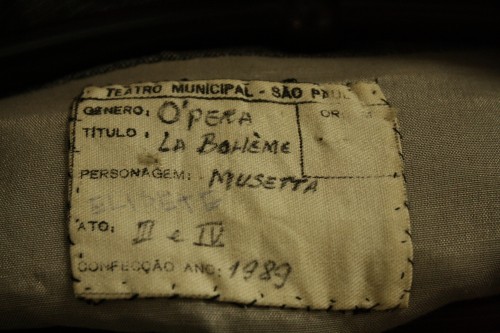 TEATRO MUNICIPAL - SÃO PAUL
GENERO: O'PERA
TÍTULO: LA BOHÈME
PERSONAGEM: MUSETTA
ATO: III e IV
CONFECÇÃO ANO: 1989